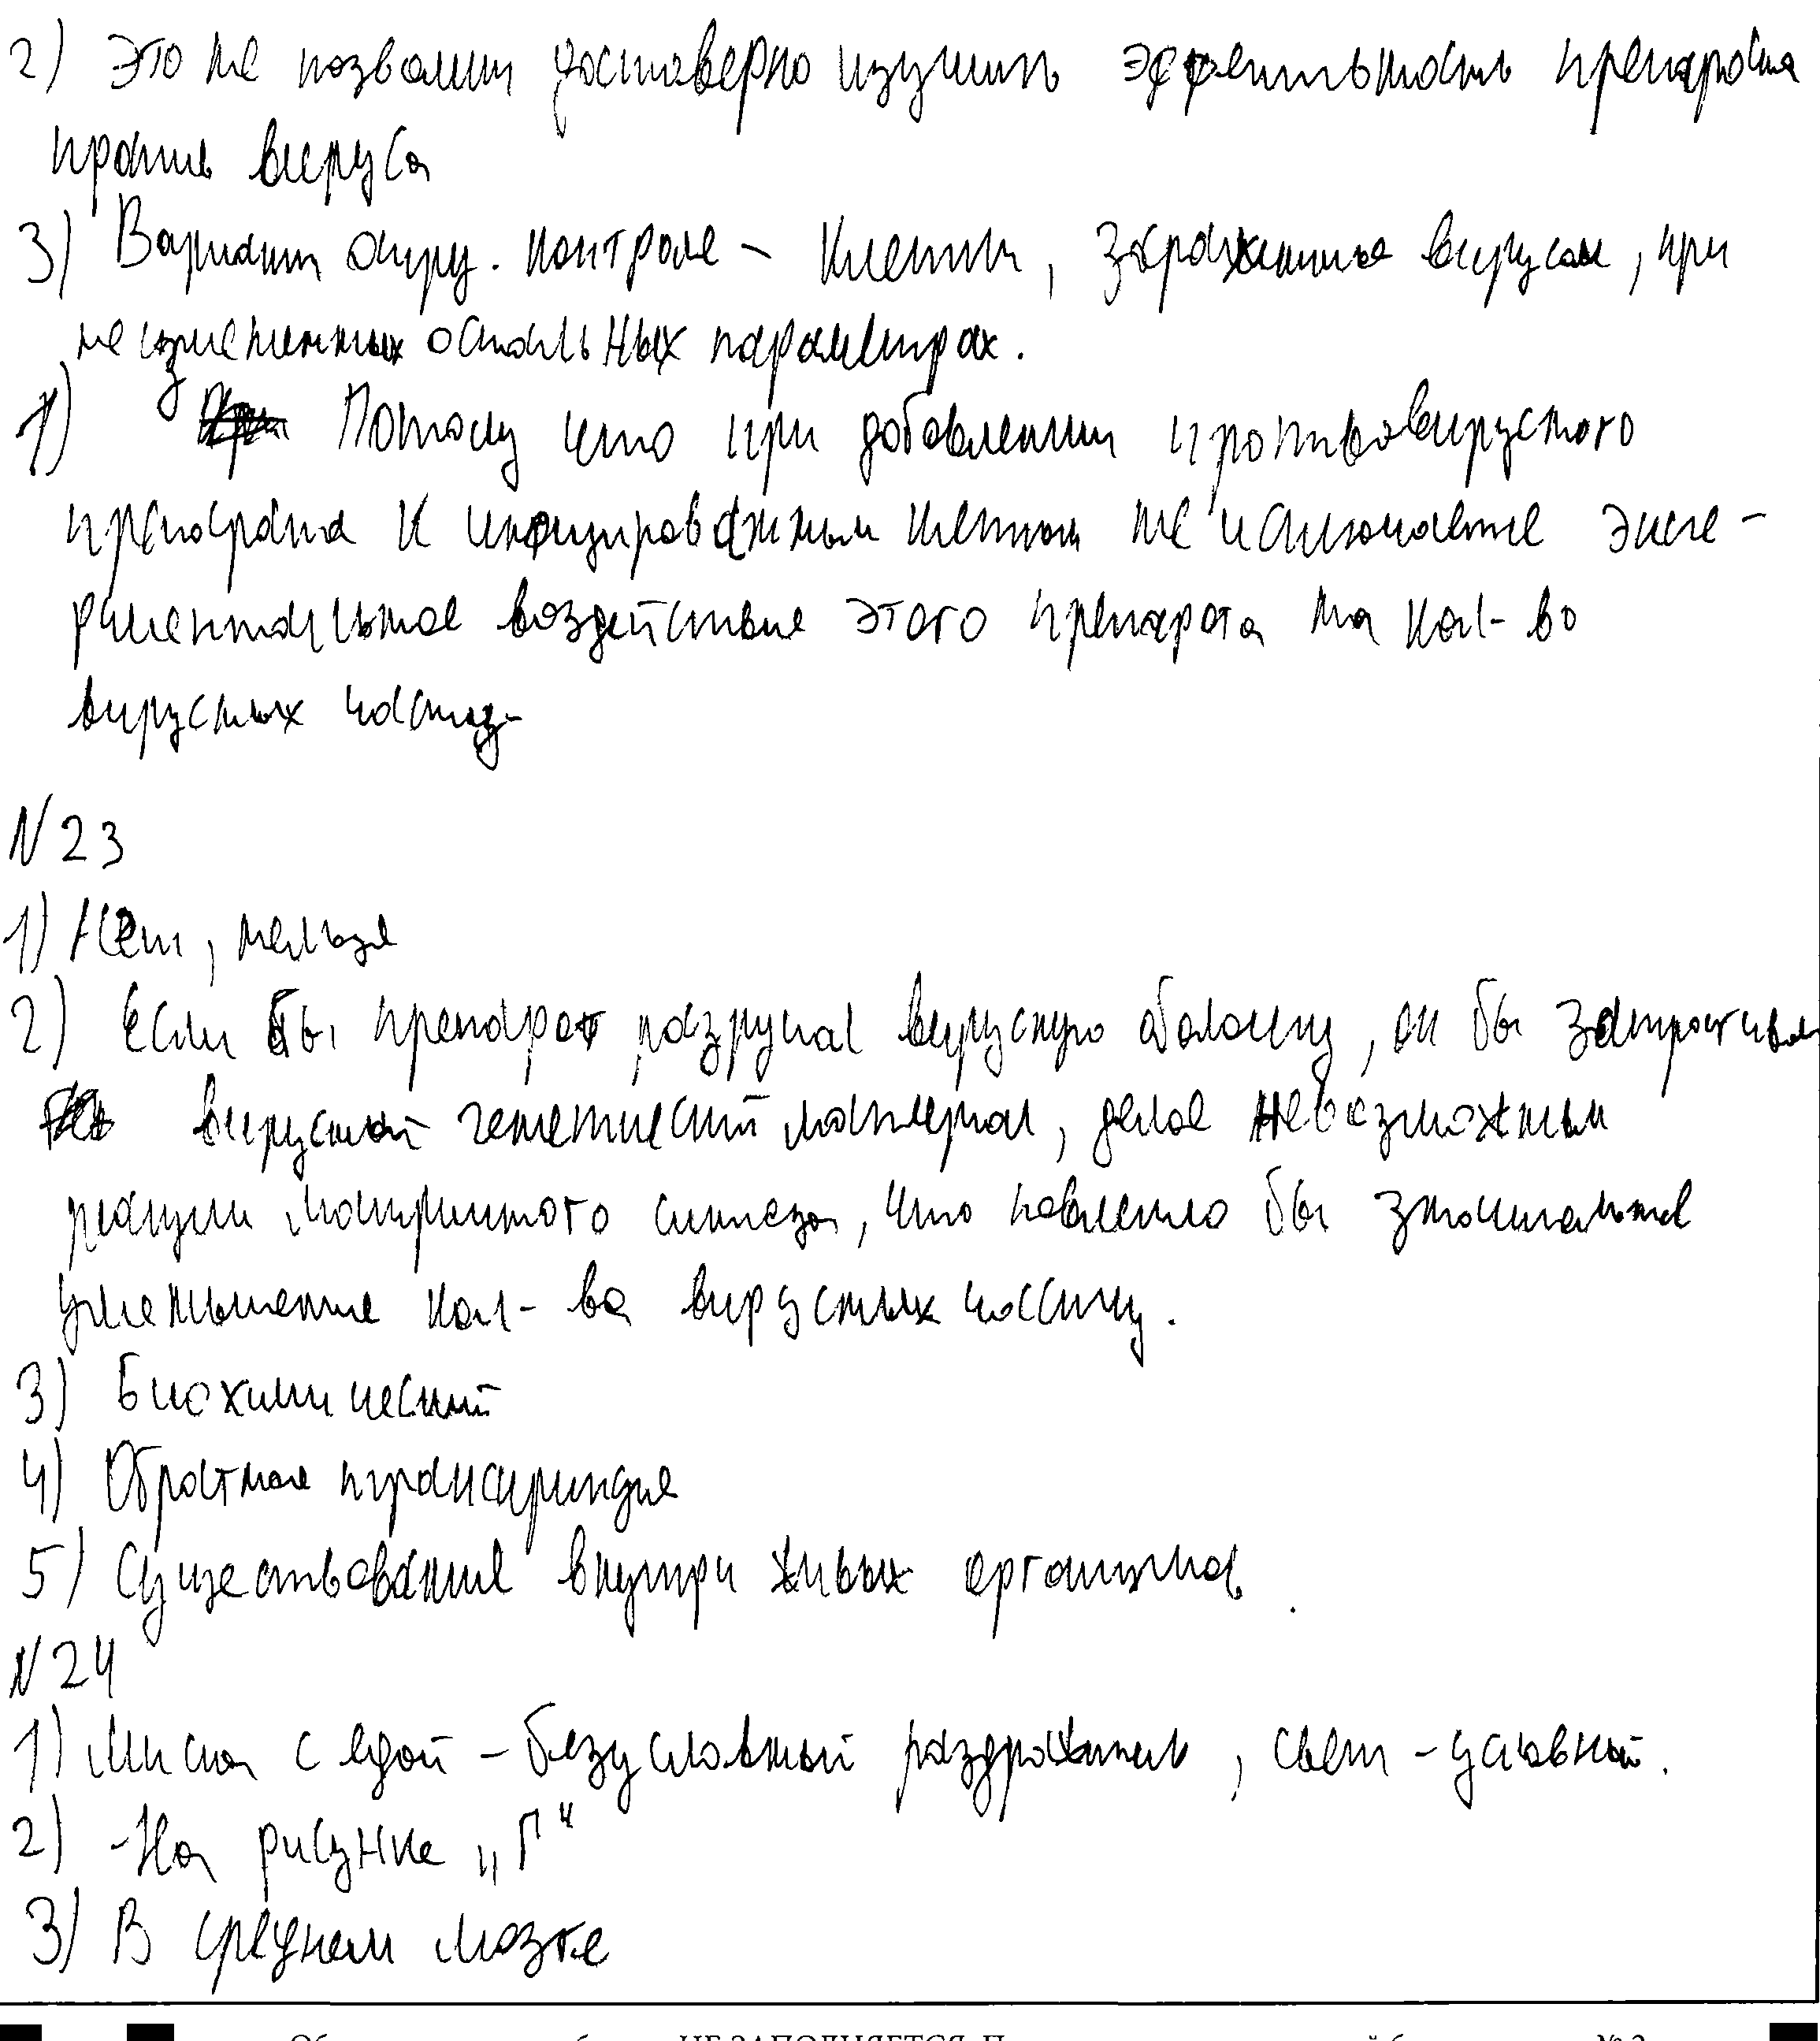 2) Это не позволит достоверно изучить эффективность препарата
против вируса
3) Вариант отр. контроля – клетки, зараженные вирусом, при
неизменённых остальных параметрах.
1) Потому что при добавлении противовирусного
препарата к инфицированным клеткам не исключаете экспе-
риментальное воздействие этого препарата на кол-во
вирусных частиц.
N 23
1) Нет, нельзя
2) Если бы препарат разрушал вирусную оболочку, он бы
вирусный генетический материал, делая невозможным
реакции матричного синтеза, что повлекло бы значительное
уменьшение кол-ва вирусных частиц.
3) Биохимический
4) Обратная транскрипция
5) Существование внутри живых организмов.
N 24
1) Миска с едой – безусловный раздражитель, свет – условный.
2) – На рисунке „Г“
3) В среднем мозге
НЕ ЗАПОЛНЯЕТСЯ. П